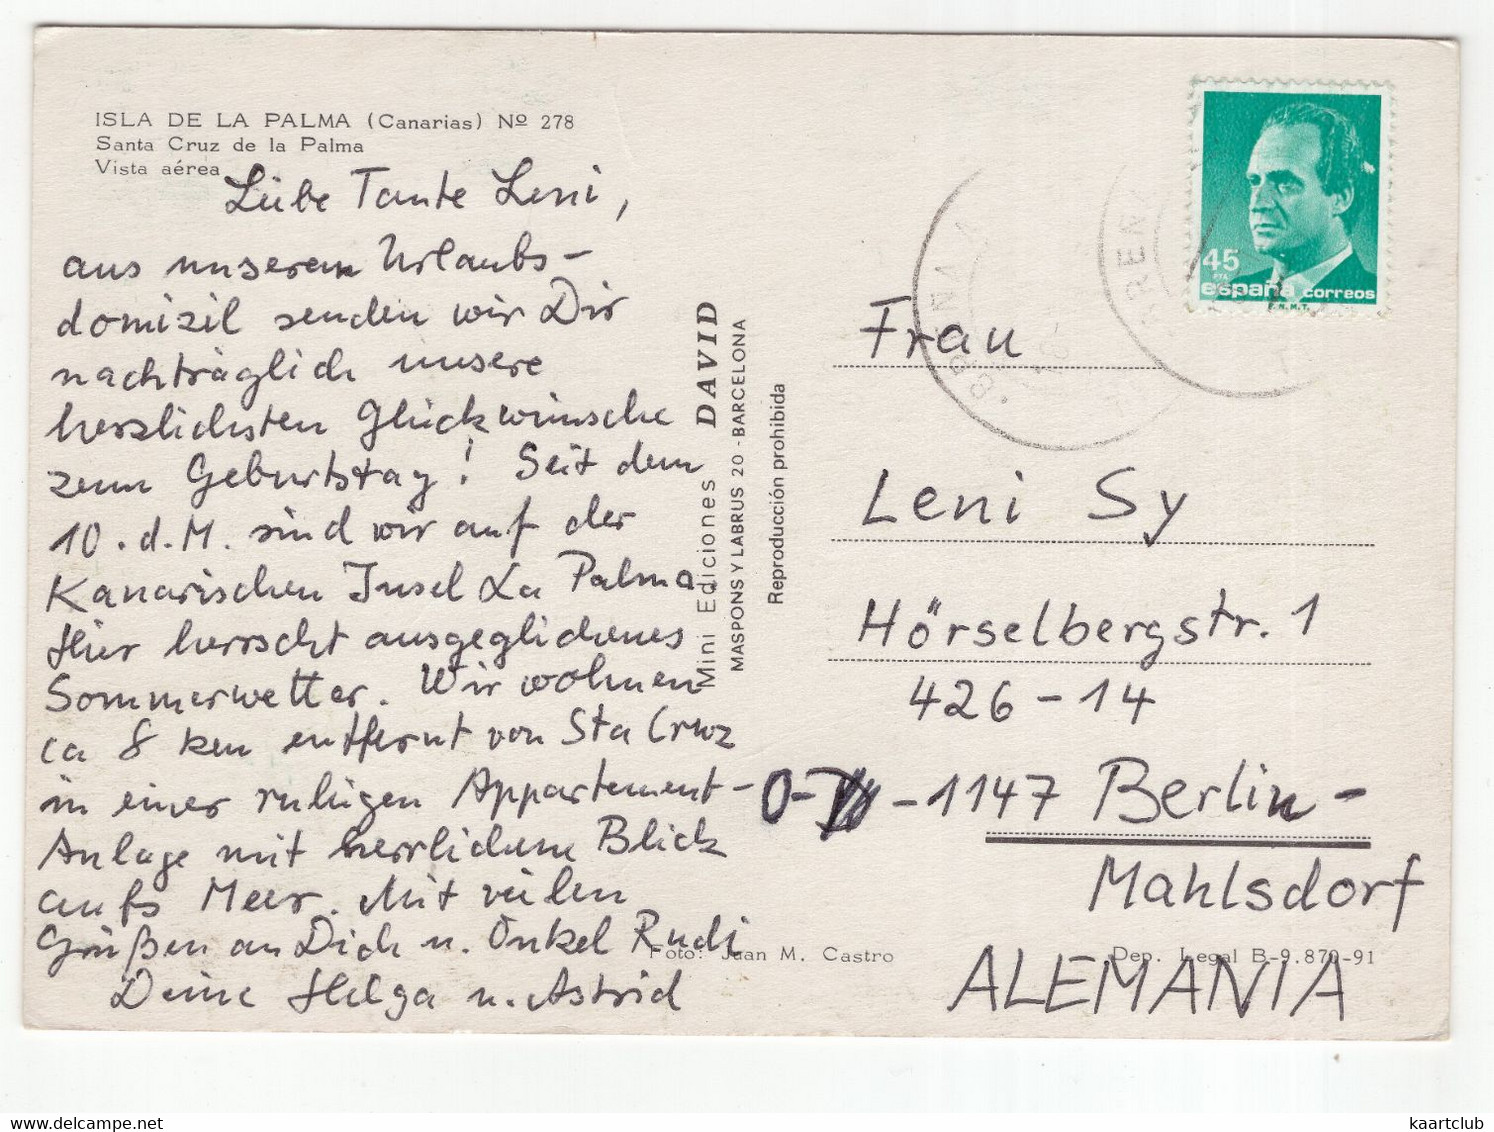 ISLA DE LA PALMA (Canarias) Nº 278
Santa Cruz de la Palma
Vista aérea
Liebe Tante Leni,
aus unserem Urlaubs-
domizil senden wir Dir
nachträglich unsere
herzlichsten Glückwünsche
zum Geburtstag! Seit dem
10. d. M. sind wir auf der
Kanarischen Insel La Palma.
Hier herrscht ausgeglichenes
Sommerwetter. Wir wohnen
ca 8 km entfernt von Sta Cruz
in einer ruhigen Appartement-
Anlage mit herrlichem Blick
aufs Meer. Mit vielen
Grüßen an Dich u. Onkel Rudi
Deine Helga u. Astrid
Mini Ediciones DAVID
MASPONS Y LABRUS 20 - BARCELONA
Reproducción prohibida
Foto: Juan M. Castro
45
PTA
españa correos
F.N.M.T.
Frau
Leni Sy
Hörselbergstr. 1
426-14
O- -1147 Berlin-
Mahlsdorf
ALEMANIA
Dep. Legal B-9.879-91
kaartclub